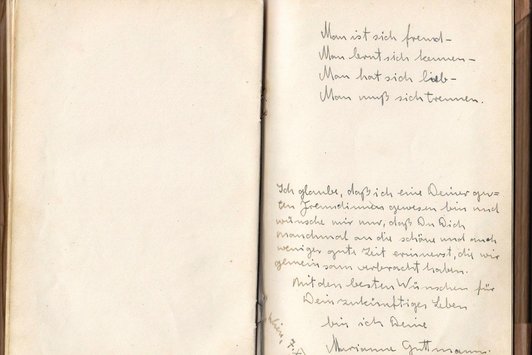 Man ist sich fremd –
Man lernt sich kennen –
Man hat sich lieb –
Man muß sich trennen.
Ich glaube, daß ich eine Deiner gu-
ten Freundinnen gewesen bin und
wünsche mir nur, daß Du Dich
manchmal an die schöne und auch
weniger gute Zeit erinnerst, die wir
gemeinsam verbracht haben.
Mit den besten Wünschen für
Dein zukünftiges Leben
bin ich Deine
Marianne Guttmann.
Wien,